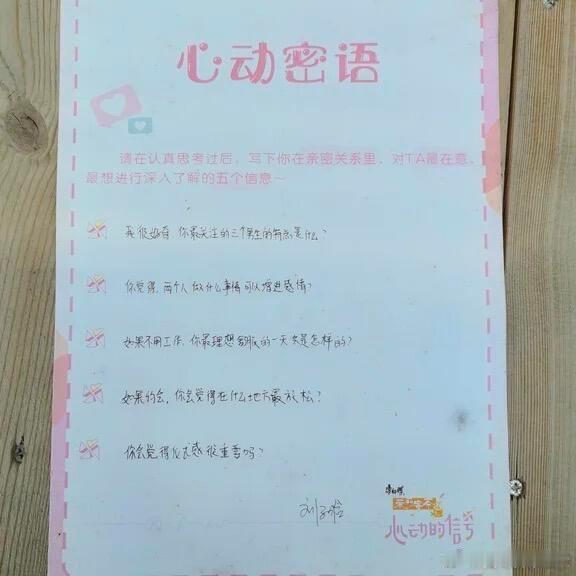 心动密语
请在认真思考过后，写下你在亲密关系里，对TA最在意、
最想进行深入了解的五个信息～
我很好奇，你最关注的三个男生的特点是什么？
你觉得，两个人做什么事情可以增进感情？
如果不用工作，你最理想舒服的一天会是怎样的？
如果约会，你会觉得在什么地方最放松？
你会觉得仪式感很重要吗？
心动的信号